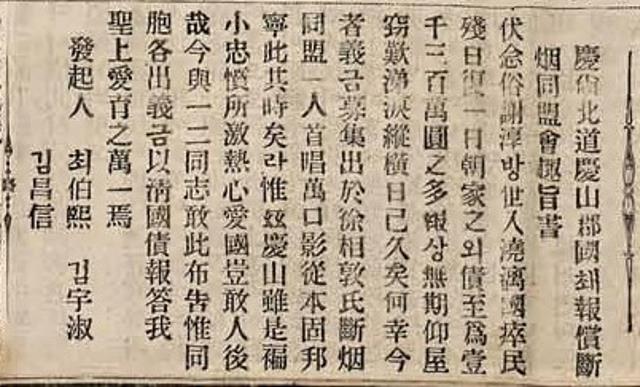 慶尙北道慶山郡國채報償斷
烟同盟會趣旨書
伏念俗謝淳방世入澆漓國瘁民
殘日復一日朝家之외債至爲壹
千三百萬圓之多報상無期仰屋
窃歎涕淚縱橫日已久矣何幸今
者義금募集出於徐相敦氏斷烟
同盟一人首唱萬口影從本固邦
寧此其時矣라惟玆慶山雖是褊
小忠憤所激熱心愛國豈敢人後
哉今與一二同志敢此布告惟同
胞各出義금以淸國債報答我
聖上愛育之萬一焉
發起人 최伯熙 김宇淑
김昌信